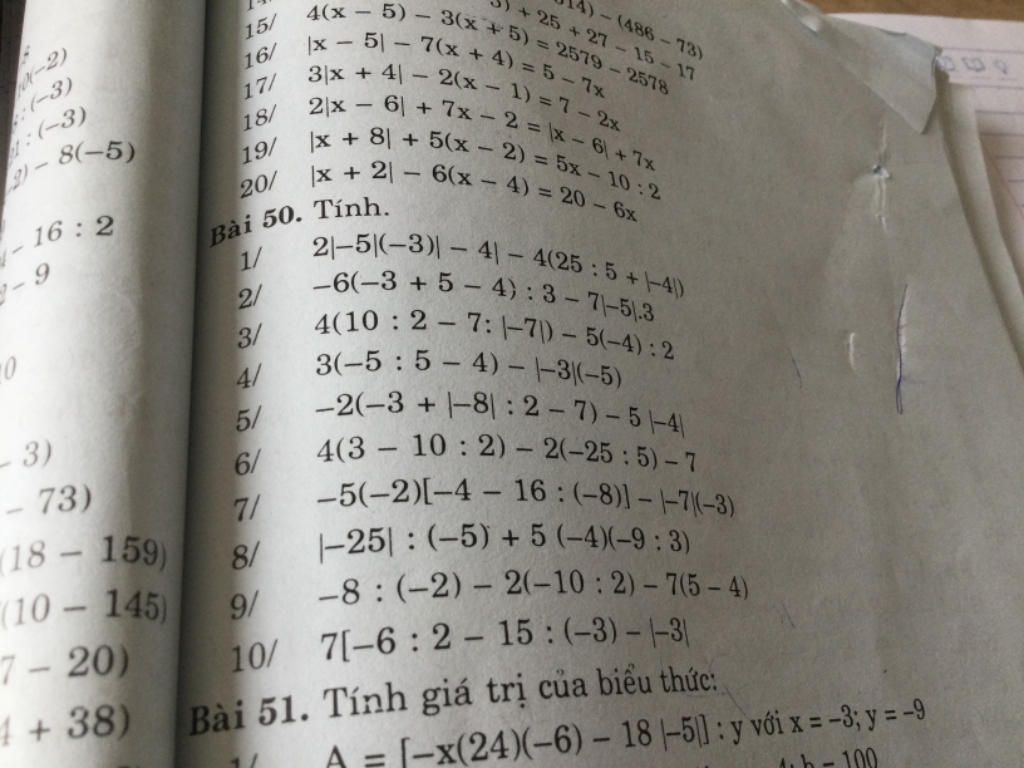 10(-2)
: (-3)
: (-3)
-2) - 8(-5)
- 16 : 2
2 - 9
- 3)
- 73)
(18 - 159)
(10 - 145)
7 - 20)
4 + 38)
) - (486 - 73)
3) + 25 + 27 - 15 - 17
15/ 4(x - 5) - 3(x + 5) = 2579 - 2578
16/ |x - 5| - 7(x + 4) = 5 - 7x
17/ 3|x + 4| - 2(x - 1) = 7 - 2x
18/ 2|x - 6| + 7x - 2 = |x - 6| + 7x
19/ |x + 8| + 5(x - 2) = 5x - 10 : 2
20/ |x + 2| - 6(x - 4) = 20 - 6x
Bài 50. Tính.
1/ 2|-5|(-3)| - 4| - 4(25 : 5 + |-4|)
2/ -6(-3 + 5 - 4) : 3 - 7|-5|.3
3/ 4(10 : 2 - 7: |-7|) - 5(-4) : 2
4/ 3(-5 : 5 - 4) - |-3|(-5)
5/ -2(-3 + |-8| : 2 - 7) - 5 |-4|
6/ 4(3 - 10 : 2) - 2(-25 : 5) - 7
7/ -5(-2)[-4 - 16 : (-8)] - |-7|(-3)
8/ |-25| : (-5) + 5 (-4)(-9 : 3)
9/ -8 : (-2) - 2(-10 : 2) - 7(5 - 4)
10/ 7[-6 : 2 - 15 : (-3) - |-3|
Bài 51. Tính giá trị của biểu thức:
1/ A = [-x(24)(-6) - 18 |-5|] : y với x = -3; y = -9
4; b = 100